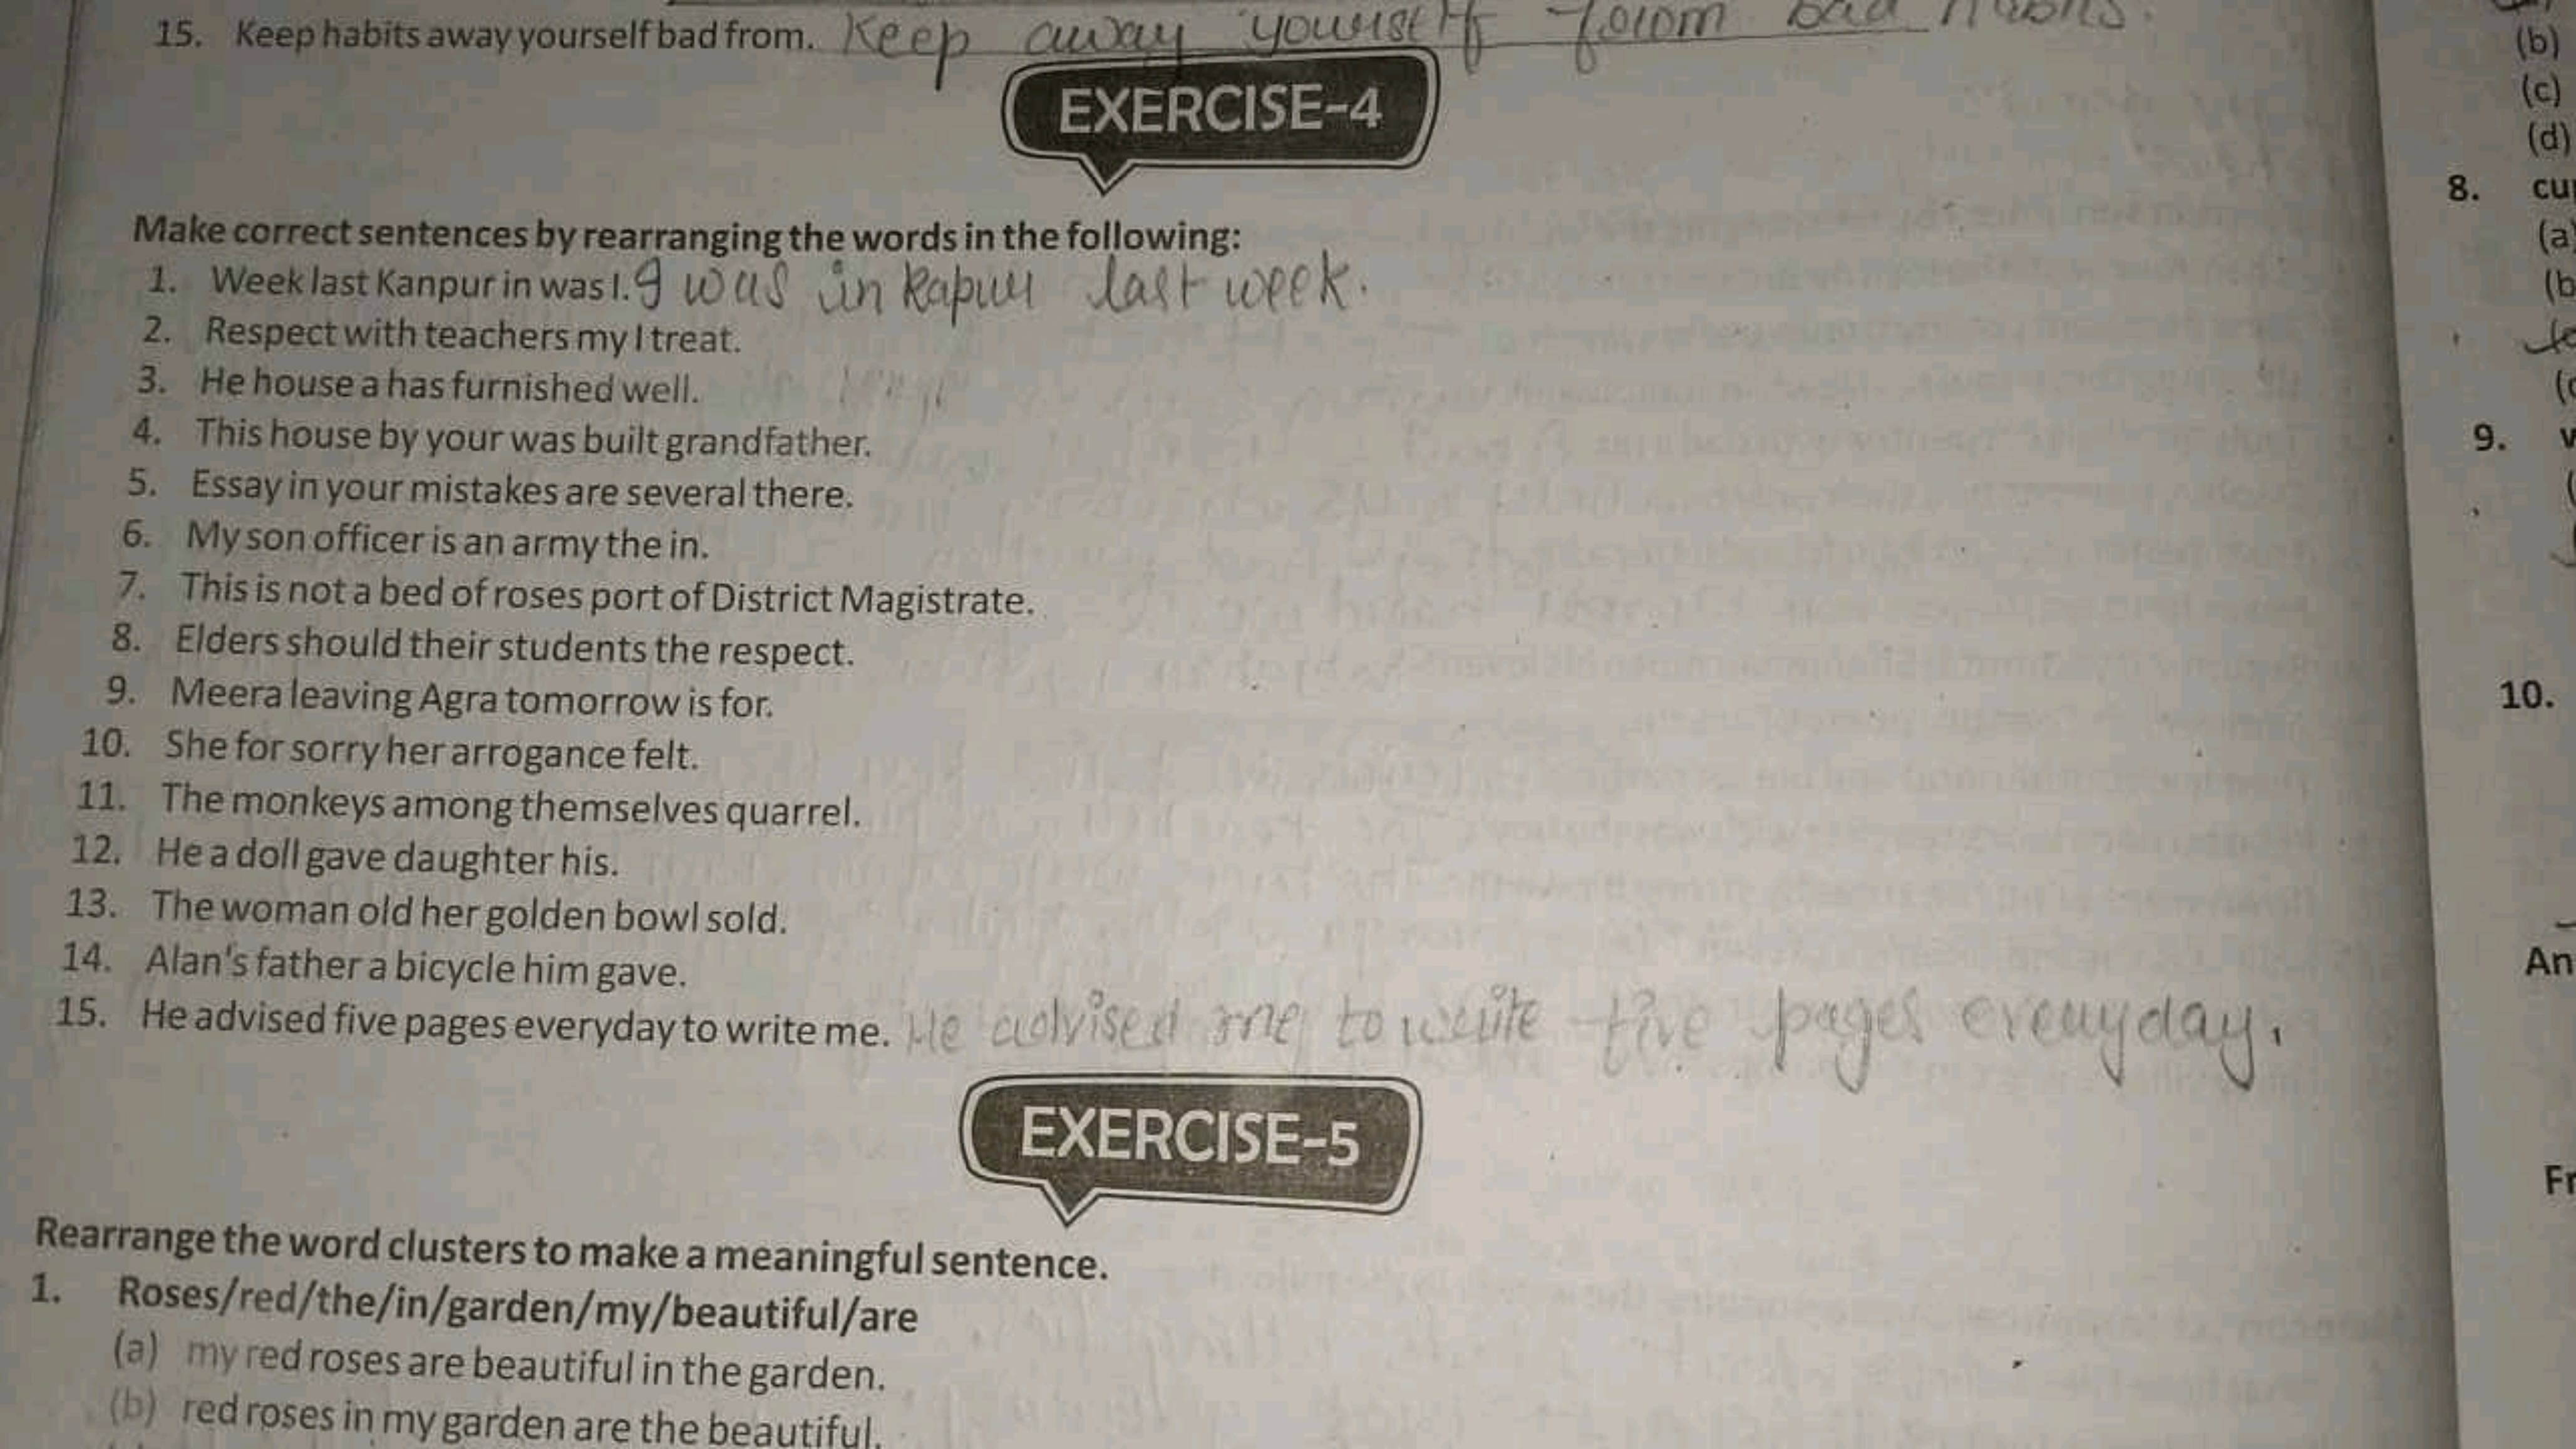 15. Keep habits away yourself bad from. Keep away yourself from bad habits.
EXERCISE-4
Make correct sentences by rearranging the words in the following:
1. Week last Kanpur in was I. I was in kapur last week.
2. Respect with teachers my I treat.
3. He house a has furnished well.
4. This house by your was built grandfather.
5. Essay in your mistakes are several there.
6. My son officer is an army the in.
7. This is not a bed of roses port of District Magistrate.
8. Elders should their students the respect.
9. Meera leaving Agra tomorrow is for.
10. She for sorry her arrogance felt.
11. The monkeys among themselves quarrel.
12. He a doll gave daughter his.
13. The woman old her golden bowl sold.
14. Alan's father a bicycle him gave.
15. He advised five pages everyday to write me. He advised me to write five pages everyday.
EXERCISE-5
Rearrange the word clusters to make a meaningful sentence.
1. Roses/red/the/in/garden/my/beautiful/are
(a) my red roses are beautiful in the garden.
(b) red roses in my garden are the beautiful.
(b)
(c)
(d)
8.
(a)
(b
9.
10.
An
Fr